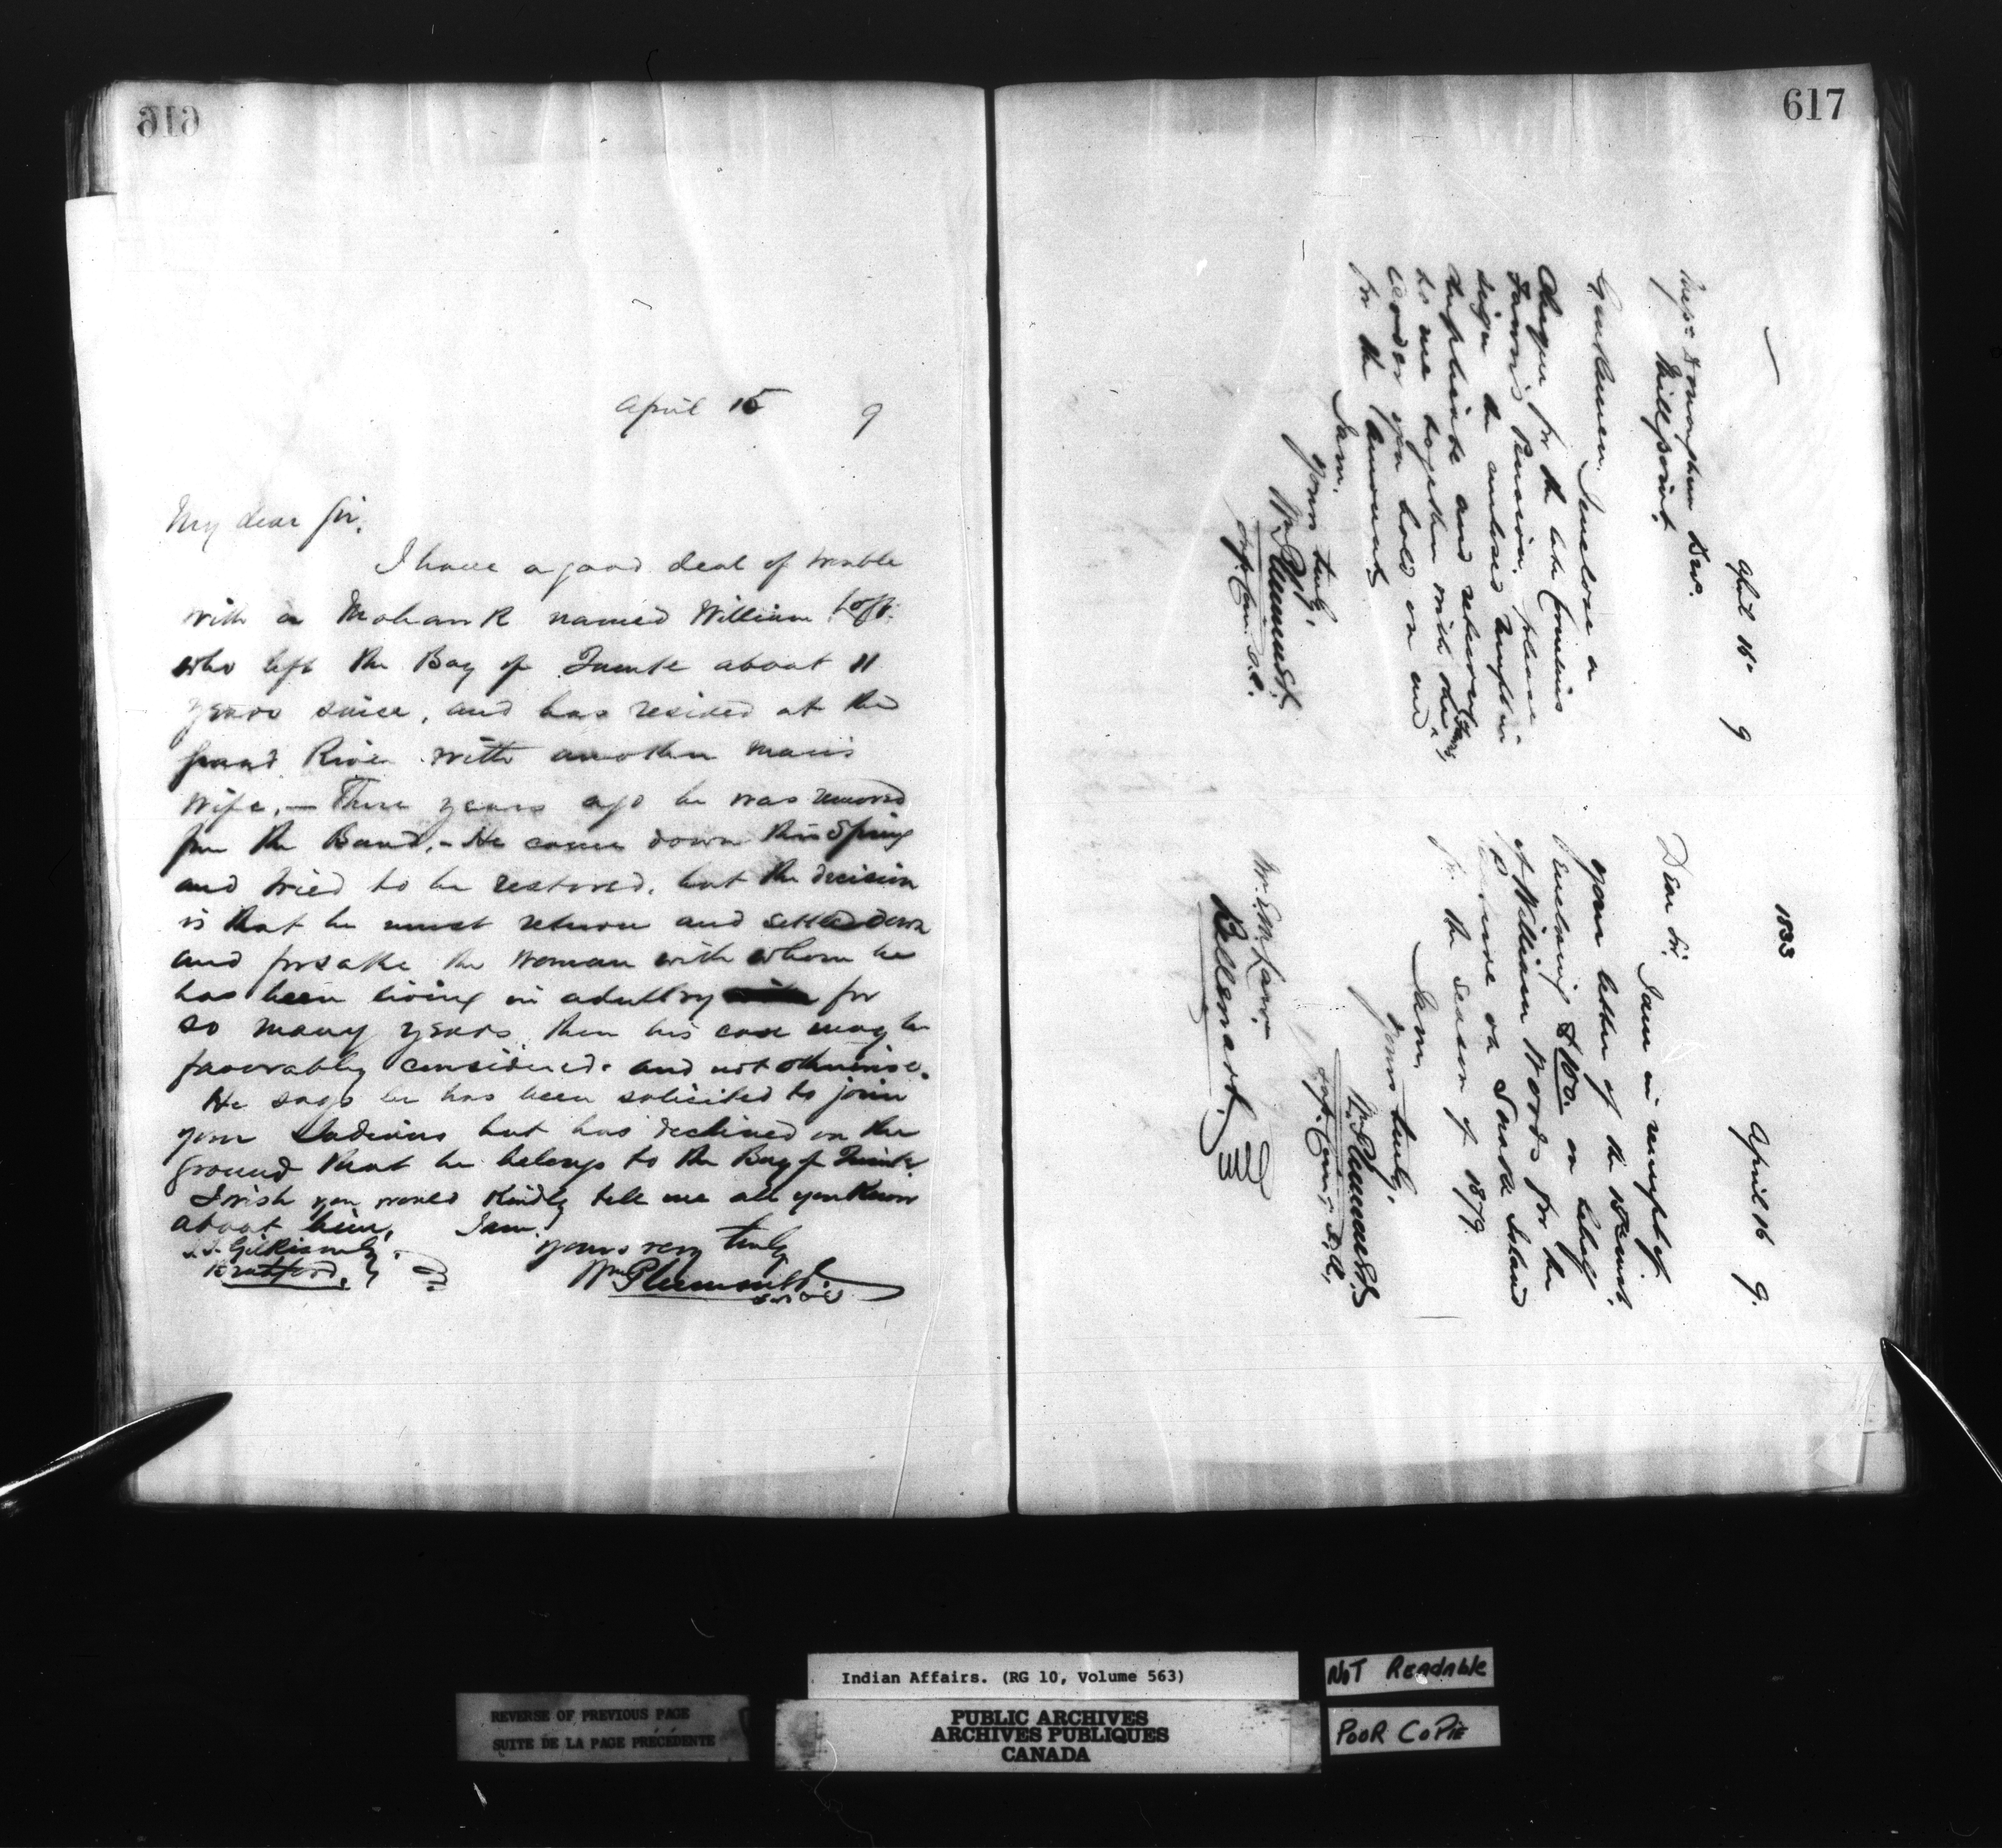 616
April 15 9
My dear Sir,
I have a good deal of trouble
with a Mohawk named William Loft
who left the Bay of Quinte about 11
years since, and has resided at the
Grand River with another man's
wife, — Three years ago he was removed
from the Band, - He came down this Spring
and tried to be restored, but the decision
is that he must return and settle down
and forsake the woman with whom he
has been living in adultry for
so many years, then his case may be
favorably considered. and not otherwise.
He says he has been solicited to join
your Indians but has declined on the
ground that he belongs to the Bay of Quinte
I wish you would kindly tell me all you know
about him, I am,
yours very truly
Wm Plummer
J. T. Gilkison
Brantford,
617
April 15 9
Millpoint.
Gentlemen, I enclose a
Cheque for the late Cornelius
Pension, please
sign the enclosed receipts in
duplicate and return
to me together with the
order you hold on me
for the amount
I am,
yours truly,
Wm Plummer
1833
April 16 9.
Dear Sir, I am in receipt of
your letter of the
enclosing $100. on behalf
of William Woods for the
on Island
for the season of 1879.
I am,
yours truly,
Wm Plummer
Belleville
Indian Affairs. (RG 10, Volume 563)
NOT Readable
REVERSE OF PREVIOUS PAGE
SUITE DE LA PAGE PRÉCÉDENTE
PUBLIC ARCHIVES
ARCHIVES PUBLIQUES
CANADA
POOR COPIE